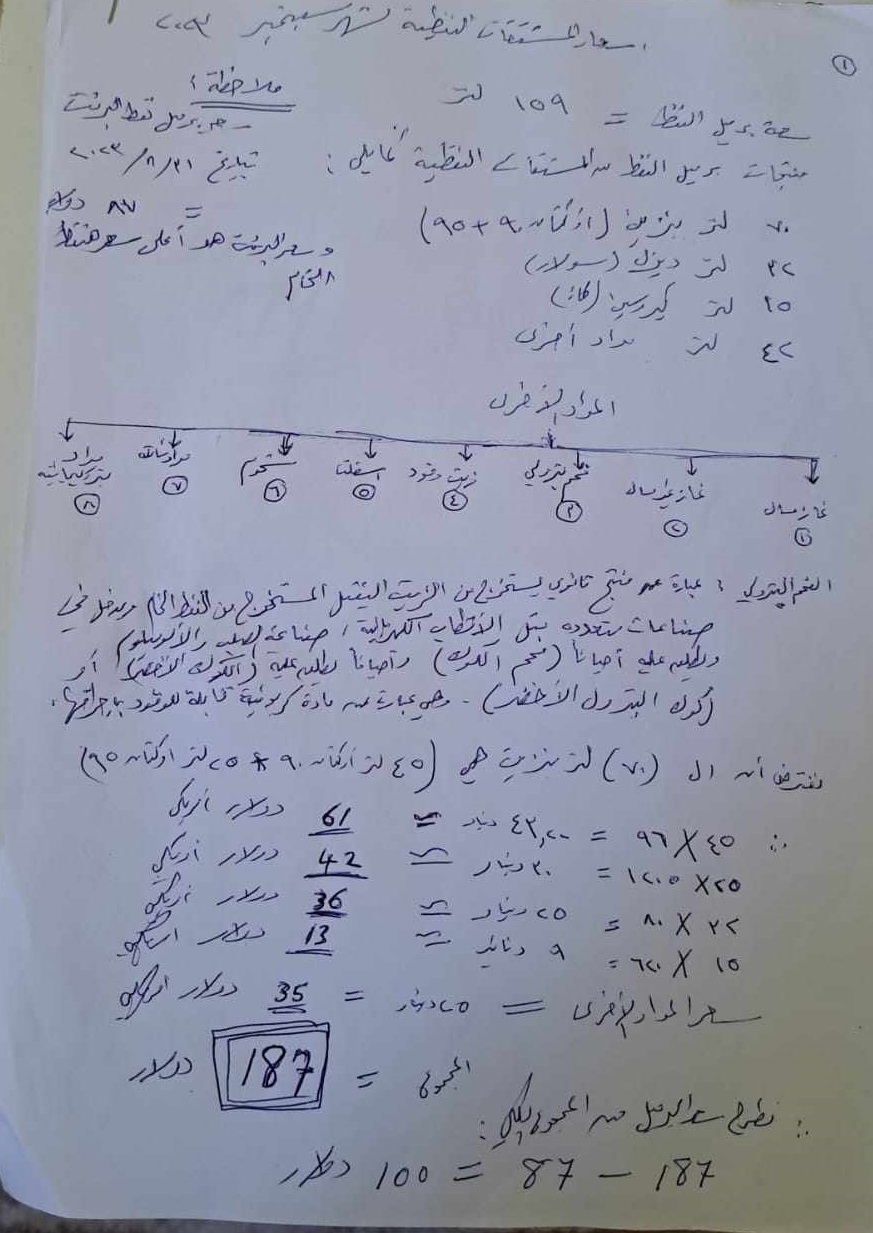 أسعار المشتقات النفطية لشهر سبتمبر ٢٠٢٣
①
سعة برميل النفط = ١٥٩ لتر
ملاحظة:
سعر برميل نفط البرنت
بتاريخ ٣١/٨/٢٠٢٣
= ٨٧ دولار
وسعر البرنت هو أعلى سعر للنفط
الخام
منتجات برميل النفط من المشتقات النفطية كما يلي:
٧٠ لتر بنزين (أوكتان ٩٠ + ٩٥)
٣٢ لتر ديزل (سولار)
١٥ لتر كيروسين (كاز)
٤٢ لتر مواد أخرى
المواد الأخرى
غاز مسال ①
غاز غير مسال ②
فحم بترولي ③
زيت وقود ④
اسفلت ⑤
شحوم ⑥
مواد ⑦
مواد بتروكيميائية ⑧
الفحم البترولي: عبارة عن منتج ثانوي يستخرج من الزيت الثقيل المستخرج من النفط الخام ويدخل في
صناعات متعدده مثل الأقطاب الكهربائية، صناعة الصلب والألومنيوم
ويطلق عليه أحياناً (فحم الكوك) وأحياناً يطلق عليه (الكوك الأخضر) أو
(كوك البترول الأخضر). وهي عبارة عن مادة كربونية قابلة للوقود بإحراقها.
نفترض أن ال (٧٠) لتر بنزين هي (٤٥ لتر أوكتان ٩٠ + ٢٥ لتر أوكتان ٩٥)
∴ ٤٥ X ٩٦ = ٤٣,٢٠ دينار = 61 دولار أمريكي
٢٥ X ١٢٠.٥ = ٣٠ دينار = 42 دولار أمريكي
٣٢ X ٨٠ = ٢٥ دينار = 36 دولار أمريكي
١٥ X ٦٢٠ = ٩ دنانير = 13 دولار أمريكي
سعر المواد الأخرى = ٢٥ دينار = 35 دولار أمريكي
المجموع = 187 دولار
∴ نطرح سعر البرميل من المجموع الكلي:
187 - 87 = 100 دولار